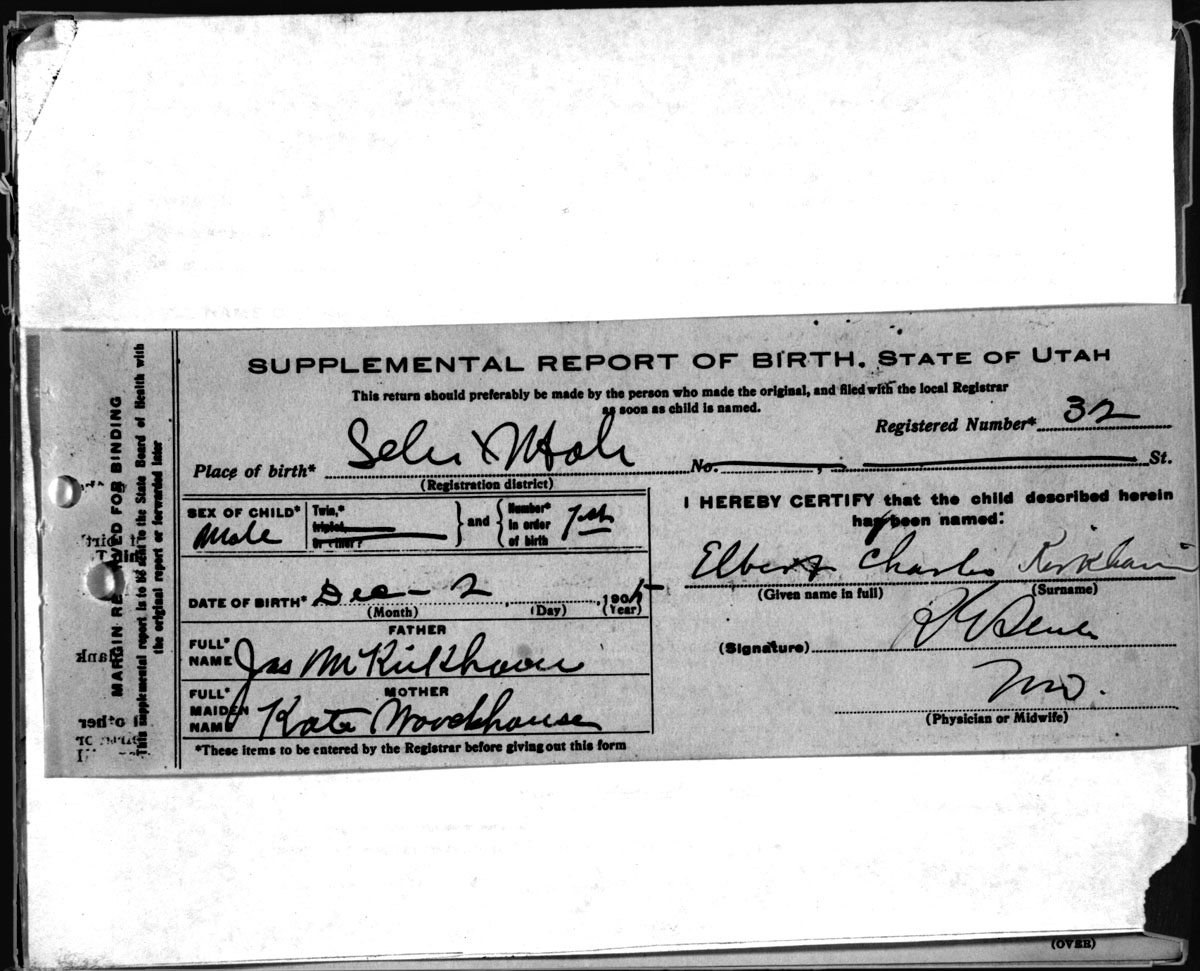 SUPPLEMENTAL REPORT OF BIRTH. STATE OF UTAH
This return should preferably be made by the person who made the original, and filed with the local Registrar
as soon as child is named.
Registered Number* 32
Place of birth* Utah No. St.
(Registration district)
SEX OF CHILD* Male
Twin,* triplet or other? and Number* in order of birth 1st
I HEREBY CERTIFY that the child described herein
has been named:
Elbert Charles Kirkham
(Given name in full) (Surname)
DATE OF BIRTH* Dec - 2, 190
(Month) (Day) (Year)
FATHER
FULL* NAME Jas M Kirkham
(Signature)
MOTHER
FULL* MAIDEN NAME Kate Woodhouse
MD.
(Physician or Midwife)
*These items to be entered by the Registrar before giving out this form
MARGIN RESERVED FOR BINDING
This supplemental report is to be sent to the State Board of Health with
the original report or forwarded later
(OVER)